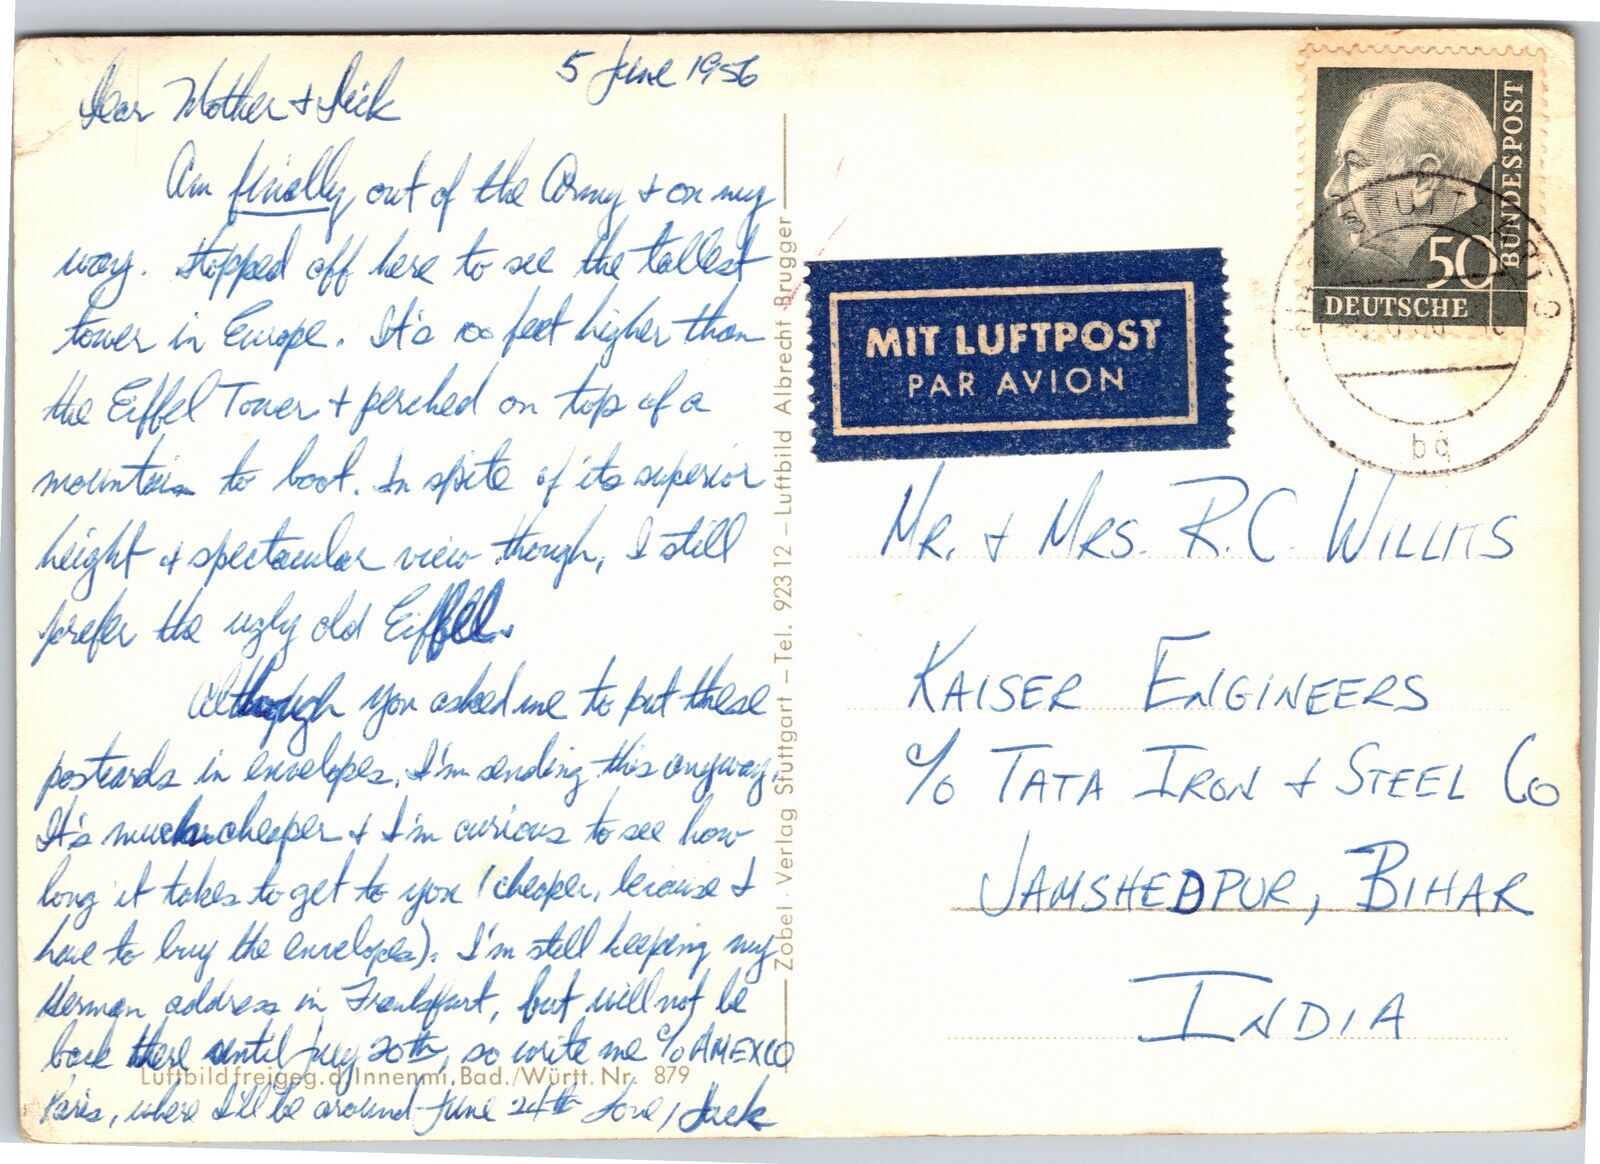 5 June 1956
Dear Mother + Dick
Am finally out of the Army + on my
way. Stopped off here to see the tallest
tower in Europe. It's 100 feet higher than
the Eiffel Tower + perched on top of a
mountain to boot. In spite of its superior
height + spectacular view though, I still
prefer the ugly old Eiffel.
Although you asked me to put these
postcards in envelopes, I'm sending this anyway.
It's much cheaper + I'm curious to see how
long it takes to get to you (cheaper, because I
have to buy the envelopes). I'm still keeping my
German address in Frankfurt, but will not be
back there until July 20th, so write me c/o AMEXCO
Paris, where I'll be around June 24th Love, Jack
Luftbild freigeg. d. Innenmi. Bad./Württ. Nr. 879
Zobel-Verlag Stuttgart – Tel. 92312 – Luftbild Albrecht Brugger
MIT LUFTPOST
PAR AVION
50
DEUTSCHE
BUNDESPOST
STUTTGART 9
bq
MR. + MRS. R.C. WILLITS
KAISER ENGINEERS
c/o TATA IRON + STEEL CO
JAMSHEDPUR, BIHAR
INDIA